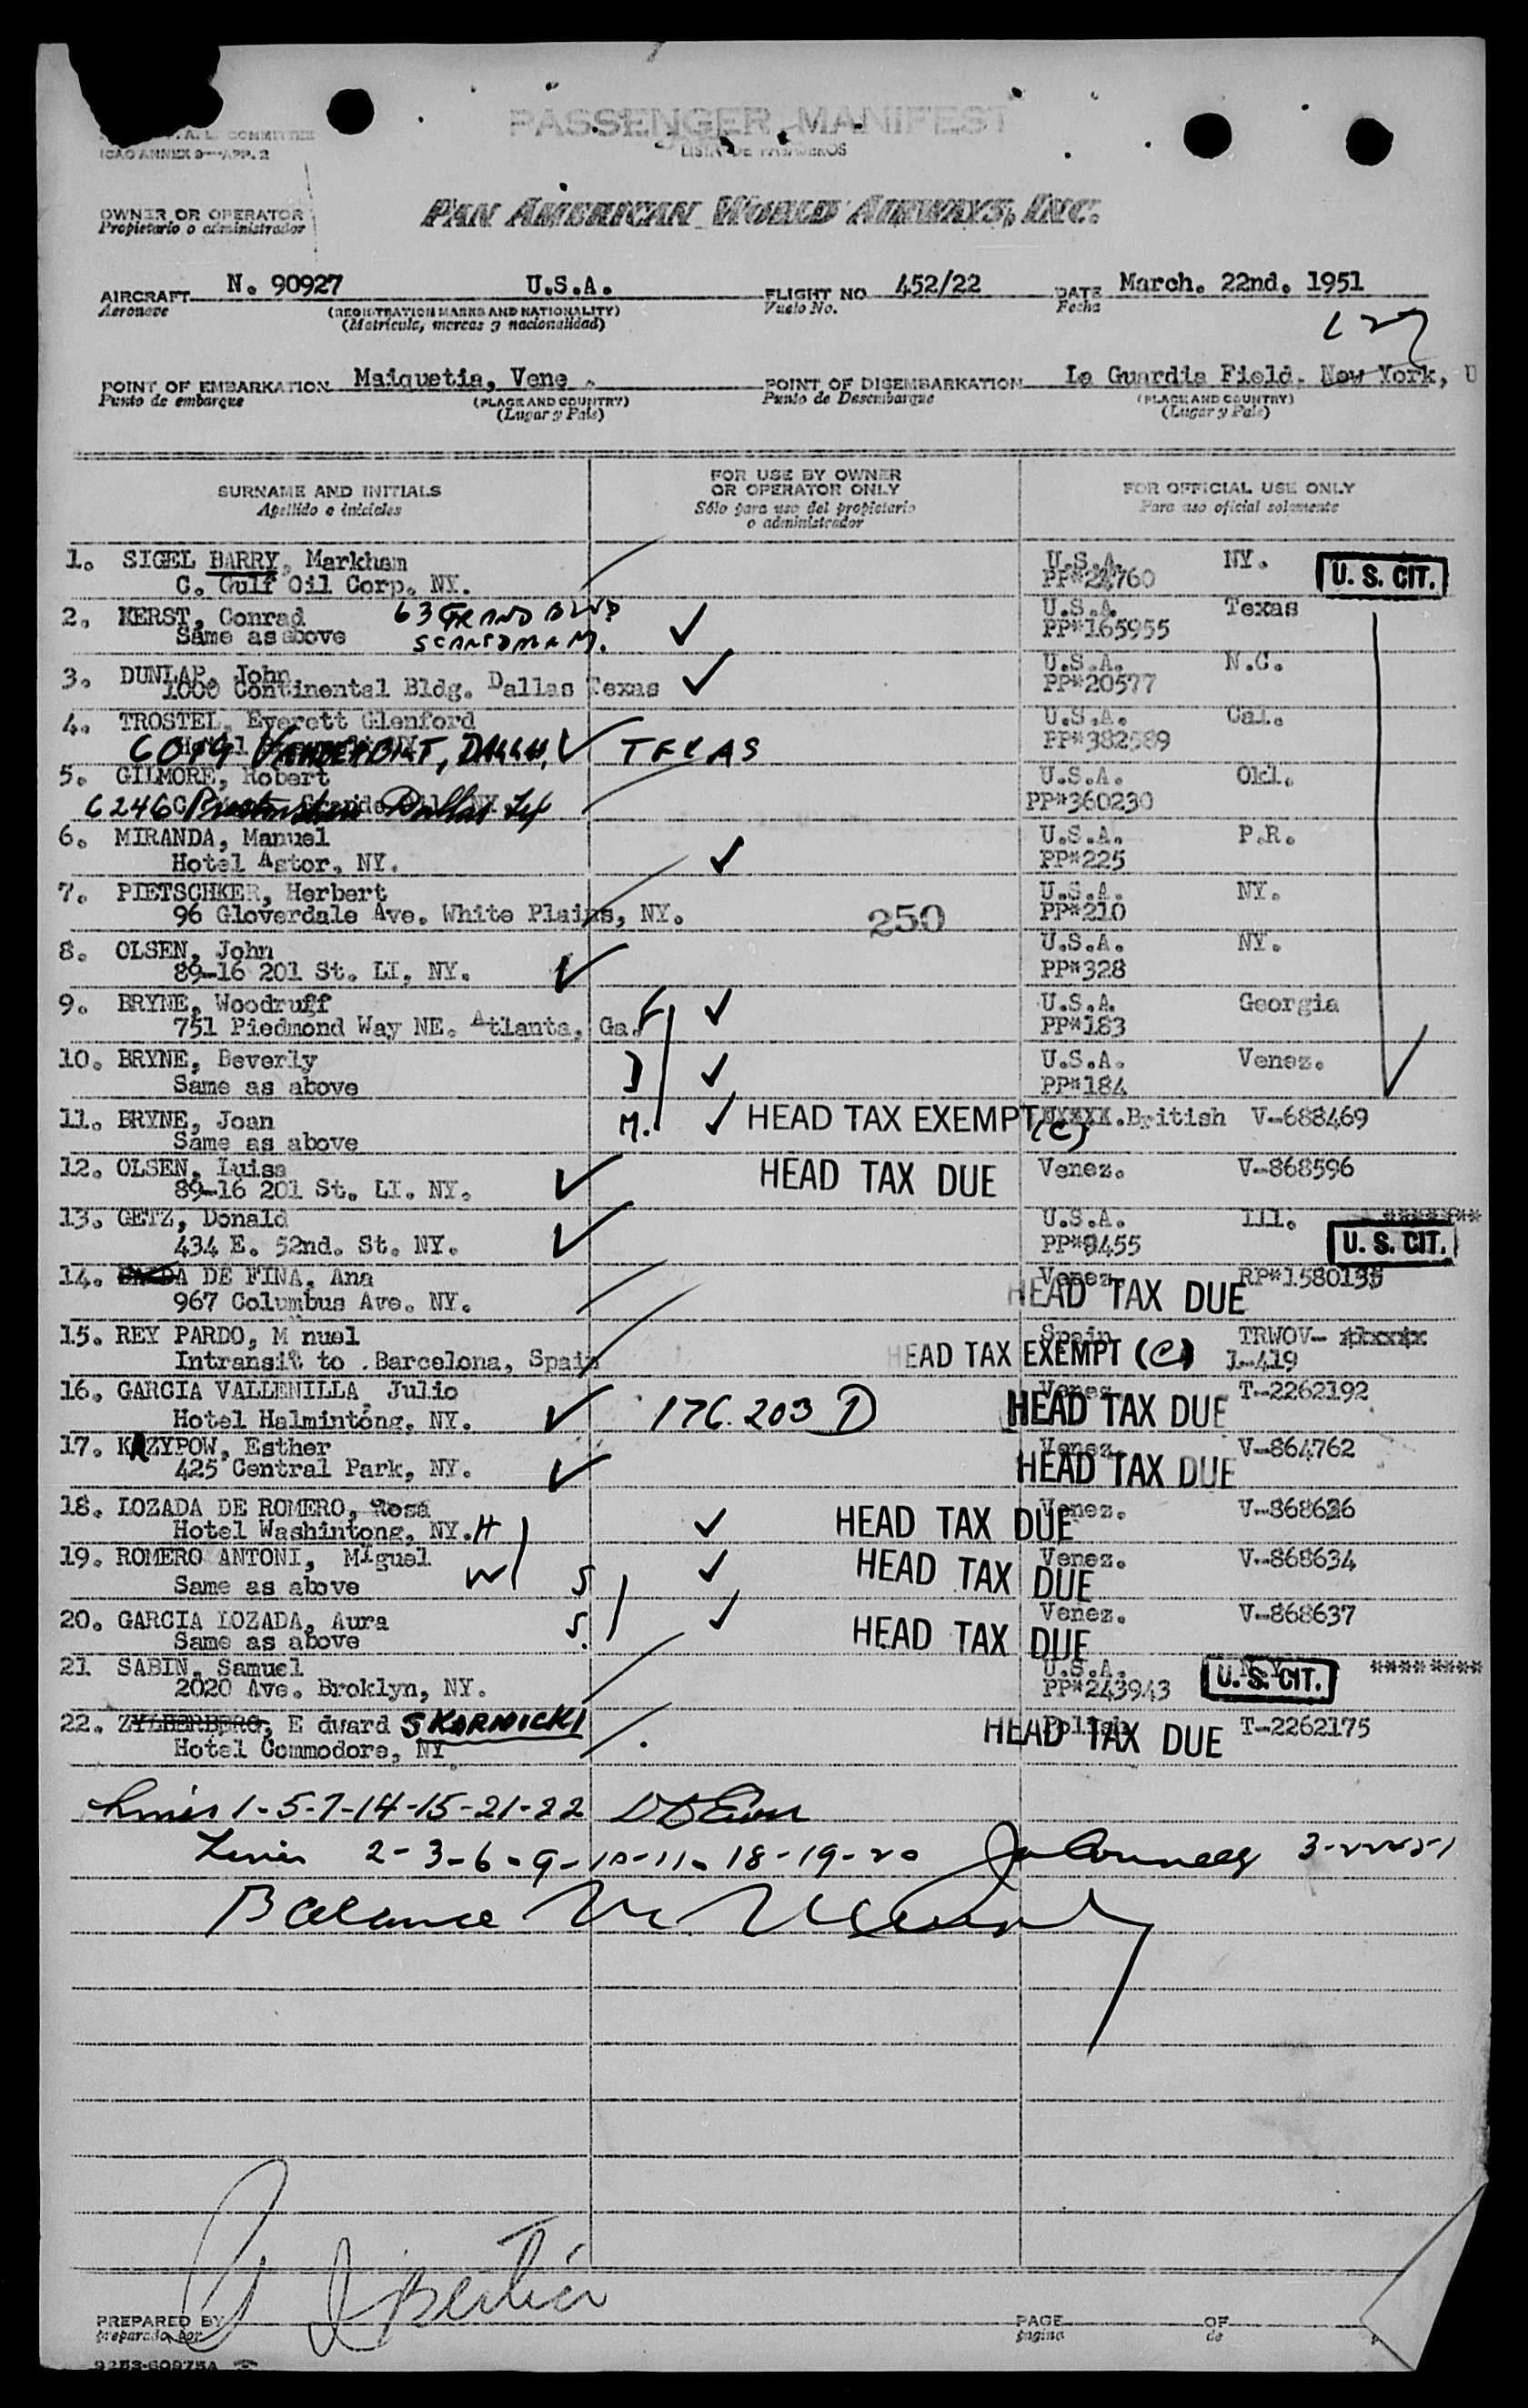 A. L. COMMITTEE
ICAO ANNEX 9—APP. 2
PASSENGER MANIFEST
LISTA DE PASAJEROS
OWNER OR OPERATOR
Propietario o administrador
PAN AMERICAN WORLD AIRWAYS, INC.
AIRCRAFT N. 90927 U.S.A. FLIGHT NO 452/22 DATE March. 22nd. 1951
Aeronave (REGISTRATION MARKS AND NATIONALITY) Vuelo No. Fecha
(Matricula, marcas y nacionalidad)
127
POINT OF EMBARKATION Maiquetia, Vene . POINT OF DISEMBARKATION La Guardia Field. New York, U
Punto de embarque (PLACE AND COUNTRY) Punto de Desembarque (PLACE AND COUNTRY)
(Lugar y Pais) (Lugar y Pais)
SURNAME AND INITIALS FOR USE BY OWNER OR OPERATOR ONLY FOR OFFICIAL USE ONLY
Apellido e iniciales Sólo para uso del propietario o administrador Para uso oficial solamente
1. SIGEL BARRY, Markham U.S.A. NY. U. S. CIT.
C. Gulf Oil Corp. NY. PP#22760
2. KERST, Conrad 63 GRAND BLVD U.S.A. Texas
Same as above SCARSDALE M. PP#165955
3. DUNLAP, John U.S.A. N.C.
1000 Continental Bldg. Dallas Texas PP#20577
4. TROSTEL, Everett Glenford U.S.A. Cal.
6019 VANDERBILT, DALLAS, TEXAS PP#382589
5. GILMORE, Robert U.S.A. Okl.
6246 Dallas Tex PP#360230
6. MIRANDA, Manuel U.S.A. P.R.
Hotel Astor, NY. PP#225
7. PIETSCHKER, Herbert U.S.A. NY.
96 Gloverdale Ave. White Plains, NY. 250 PP#210
8. OLSEN, John U.S.A. NY.
89-16 201 St. LI, NY. PP#328
9. BRYNE, Woodruff F U.S.A. Georgia
751 Piedmond Way NE. Atlanta, Ga. PP#183
10. BRYNE, Beverly D U.S.A. Venez.
Same as above PP#184
11. BRYNE, Joan M. HEAD TAX EXEMPT (C) British V-688469
Same as above
12. OLSEN, Luisa HEAD TAX DUE Venez. V-868596
89-16 201 St. LI. NY.
13. GETZ, Donald U.S.A. Ill. *******
434 E. 52nd. St. NY. PP#9455 U. S. CIT.
14. DE FINA, Ana Venez RP#1580135
967 Columbus Ave. NY. HEAD TAX DUE
15. REY PARDO, M nuel Spain TRWOV-
Intransit to .Barcelona, Spain HEAD TAX EXEMPT (C) 1-419
16. GARCIA VALLENILLA, Julio Venez. T-2262192
Hotel Halmintong, NY. 176.203 D HEAD TAX DUE
17. KRZYPOW, Esther Venez. V-864762
425 Central Park, NY. HEAD TAX DUE
18. LOZADA DE ROMERO, Rosa Venez. V-868626
Hotel Washintong, NY. H HEAD TAX DUE
19. ROMERO ANTONI, Miguel HEAD TAX DUE Venez. V-868634
Same as above W S
20. GARCIA LOZADA, Aura Venez. V-868637
Same as above S. HEAD TAX DUE
21 SABIN, Samuel U.S.A. N.Y. U. S. CIT. ********
2020 Ave. Broklyn, NY. PP#243943
22. ZYLBERBERG, E dward SKARNICKI Polish T-2262175
Hotel Commodore, NY HEAD TAX DUE
Lines 1-5-7-14-15-21-22
Lines 2-3-6-9-10-11-18-19-20 3-22-51
Balance
PREPARED BY PAGE OF
preparado por pagina de
9253-60975A